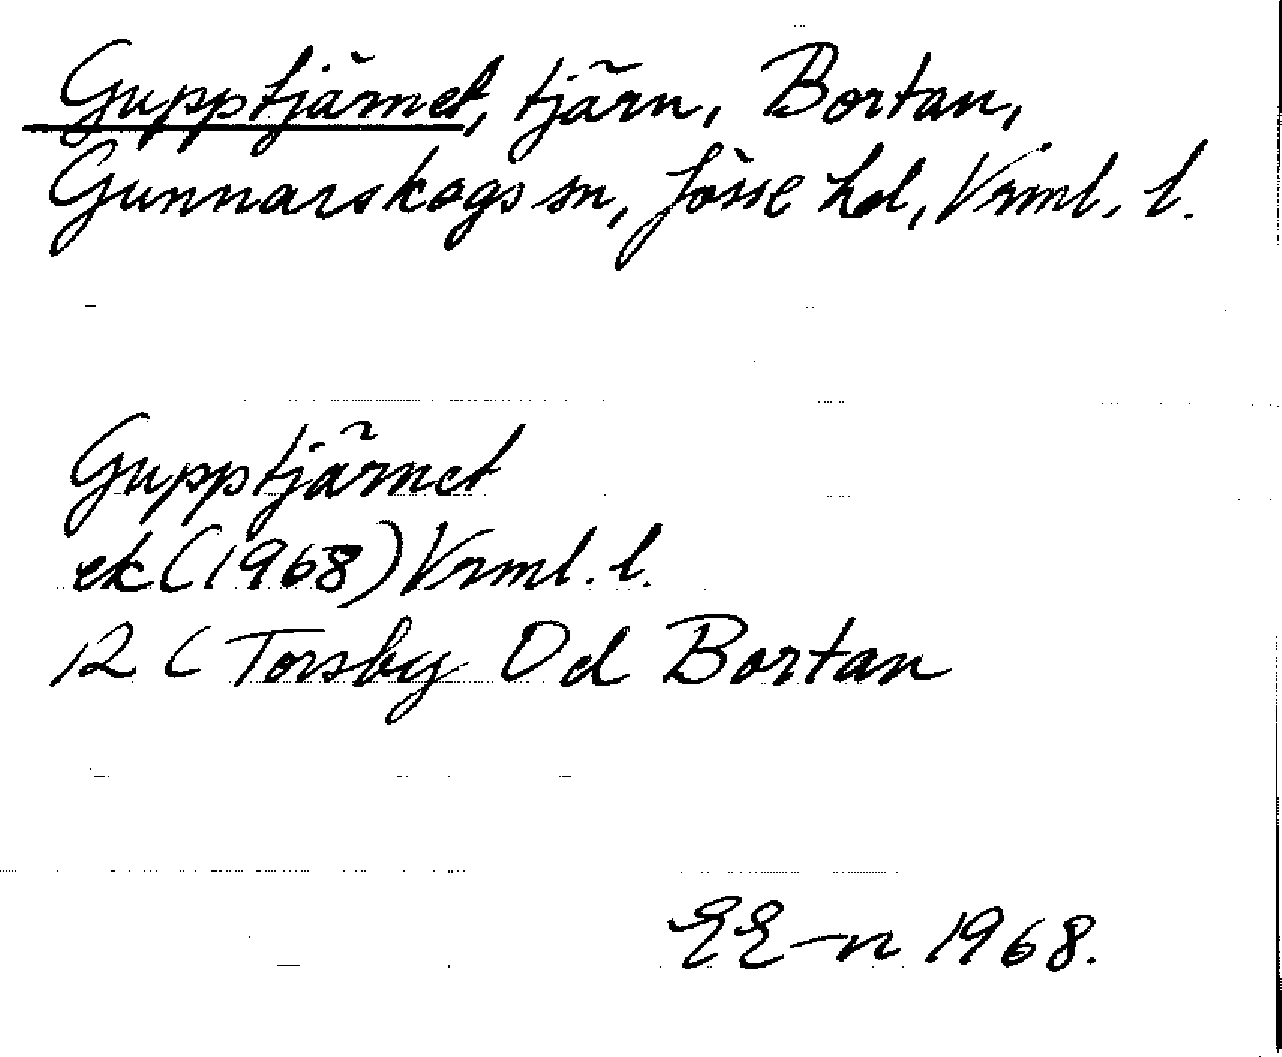 Gupptjärnet, tjärn, Bortan,
Gunnarskogs sn, Jösse hd, Vrml. l.
Gupptjärnet
ek (1968) Vrml. l.
12 C Torsby 0d Bortan
EE-n 1968.